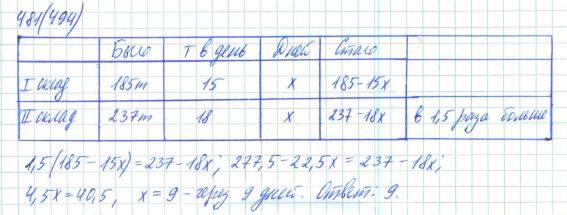 481(494)
Было т в день Дней Стало
I склад 185т 15 x 185-15x
II склад 237т 18 x 237-18x в 1,5 раза больше
1,5(185-15x)=237-18x; 277,5-22,5x=237-18x;
4,5x=40,5, x=9 - через 9 дней. Ответ: 9.